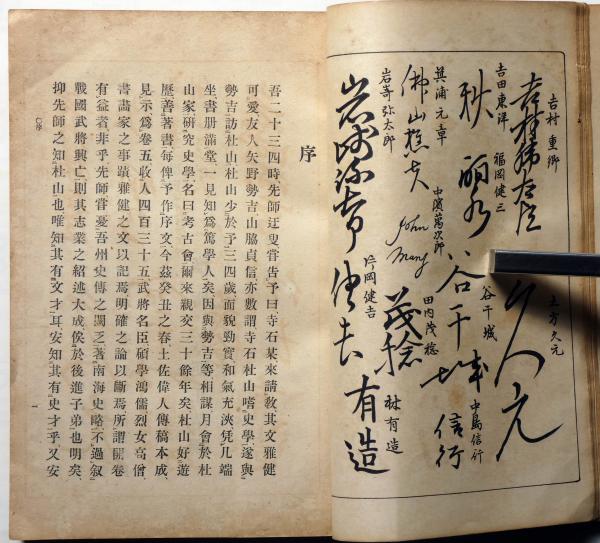 吉村重郷
土方久元
久元
吉田東洋
福岡健三
秋
谷干城
谷干城
中島信行
信行
箕浦元章
佛山樵夫
中濱萬次郎
John Mung
田内茂稔
茂稔
林有造
有造
岩嵜弥太郎
岩崎弥太郎
片岡健吉
健吉
序
吾二十三四時先師迂叟嘗告予曰寺石某來請敎其文雅健
可愛友人矢野勢吉山脇貞信亦數謂寺石杜山嗜史學遂與
勢吉訪杜山杜山少於予三四歲而貌勁實和氣充浹凭几端
坐書册滿堂一見知爲篤學人矣因與勢吉等相謀月會於杜
山家硏究史學名曰考古會爾來親交三十餘年矣杜山好遊
歷善著書每俾予作序文今茲癸丑之春土佐偉人傳稿本成
見示爲卷五收人四百三十五武將名臣碩學鴻儒烈女高僧
書畵家之事蹟雅健之文以記焉明確之論以斷焉所謂開卷
有益者非乎先師嘗憂吾州史傳之闕乏著南海史略不過叙
戰國武將興亡則其志業之紹述大成俟於後進子弟也明矣
抑先師之知杜山也唯知其有文才耳安知其有史才乎又安
序
一